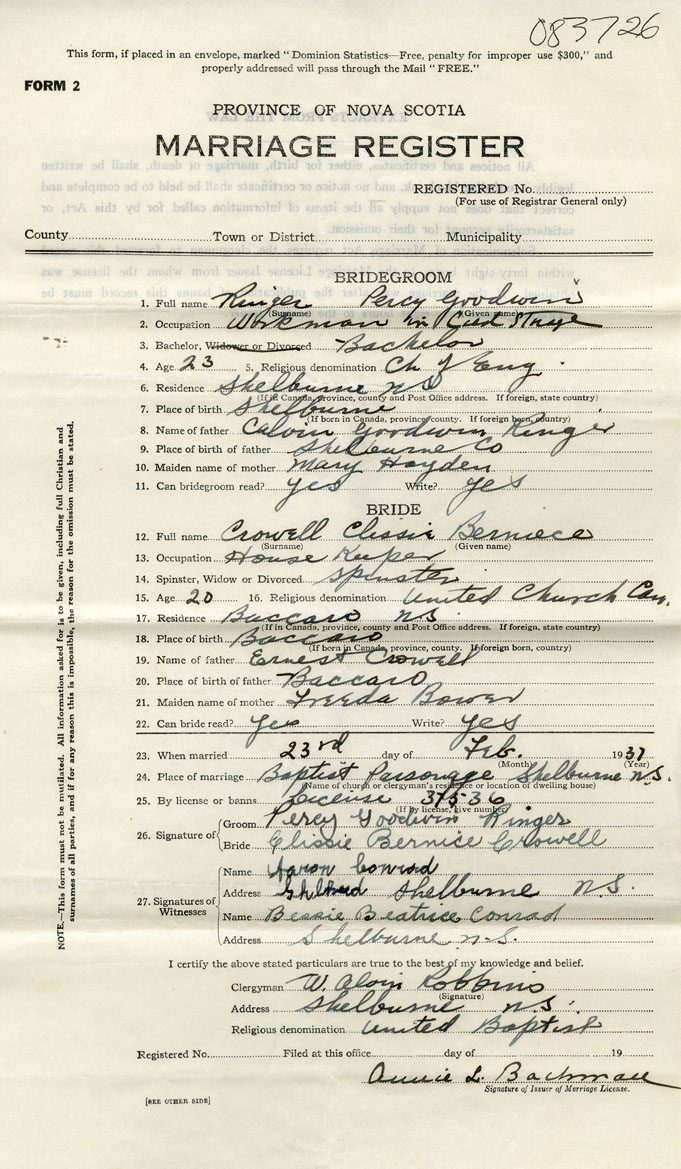 083726
This form, if placed in an envelope, marked "Dominion Statistics—Free, penalty for improper use $300," and
properly addressed will pass through the Mail "FREE."
FORM 2
PROVINCE OF NOVA SCOTIA
MARRIAGE REGISTER
REGISTERED No.
(For use of Registrar General only)
County Town or District Municipality
BRIDEGROOM
1. Full name Ringer Percy Goodwin
(Surname) (Given name)
2. Occupation Workman in
3. Bachelor, Widower or Divorced Bachelor
4. Age 23 5. Religious denomination Ch of Eng.
6. Residence Shelburne NS
(If in Canada, province, county and Post Office address. If foreign, state country)
7. Place of birth Shelburne
(If born in Canada, province, county. If foreign born, country)
8. Name of father Calvin Goodwin Ringer
9. Place of birth of father Shelburne Co
10. Maiden name of mother Mary Hayden
11. Can bridegroom read? yes Write? yes
BRIDE
12. Full name Crowell Clissie Berniece
(Surname) (Given name)
13. Occupation House Keeper
14. Spinster, Widow or Divorced Spinster
15. Age 20 16. Religious denomination United Church Can.
17. Residence Baccaro N.S.
(If in Canada, province, county and Post Office address. If foreign, state country)
18. Place of birth Baccaro
(If born in Canada, province, county. If foreign born, country)
19. Name of father Ernest Crowell
20. Place of birth of father Baccaro
21. Maiden name of mother Freeda Bower
22. Can bride read? yes Write? yes
23. When married 23rd day of Feb. 1937
(Month) (Year)
24. Place of marriage Baptist Parsonage Shelburne N.S.
(Name of church or clergyman's residence or location of dwelling house)
25. By license or banns License 37536
(If by license, give number)
26. Signature of Groom Percy Goodwin Ringer
Bride Clissie Bernice Crowell
27. Signatures of Witnesses
Name Aaron Conrad
Address Shelburne N.S.
Name Bessie Beatrice Conrad
Address Shelburne N.S.
I certify the above stated particulars are true to the best of my knowledge and belief.
Clergyman W. Alvin Robbins
(Signature)
Address Shelburne N.S.
Religious denomination United Baptist
Registered No. Filed at this office day of 19
Annie L. Bachman
Signature of Issuer of Marriage License.
[SEE OTHER SIDE]
NOTE.—This form must not be mutilated. All information asked for is to be given, including full Christian and
surnames of all parties, and if for any reason this is impossible, the reason for the omission must be stated.